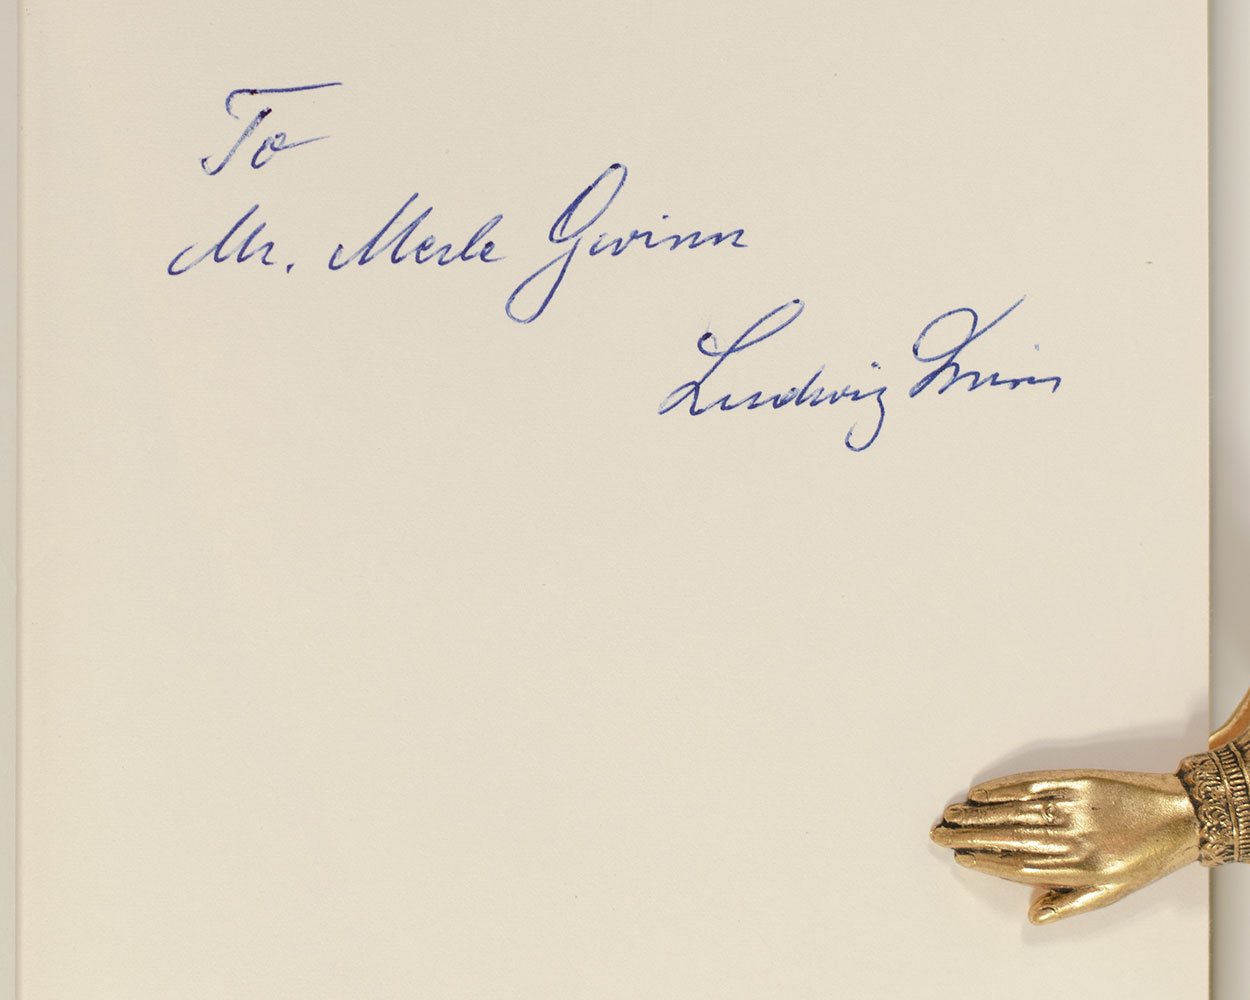 To
Mr. Merle Gwinn
Ludwig Mises